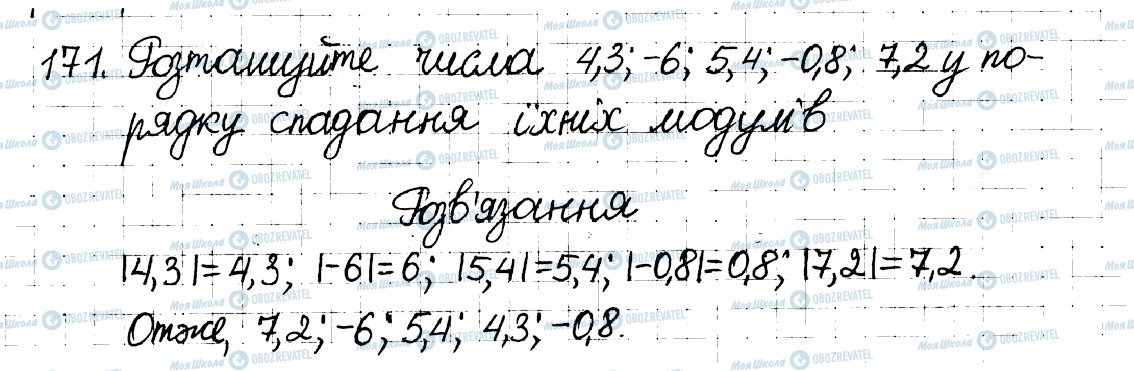 171. Розташуйте числа 4,3; -6; 5,4; -0,8; 7,2 у по-
рядку спадання їхніх модулів
Розв'язання
|4,3|=4,3; |-6|=6; |5,4|=5,4; |-0,8|=0,8; |7,2|=7,2.
Отже, 7,2; -6; 5,4; 4,3; -0,8.